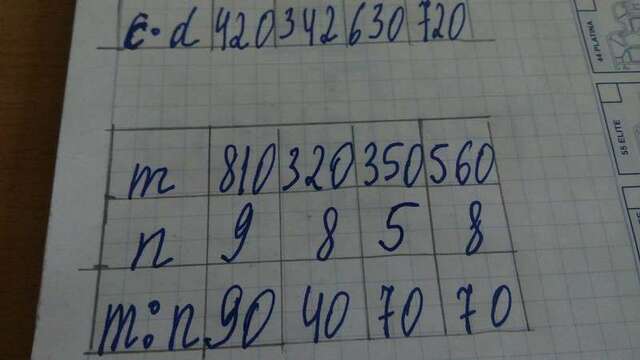 c·d 420 342 630 720
44 PLATINA
m 810 320 350 560
55 ELITE
n 9 8 5 8
m:n 90 40 70 70